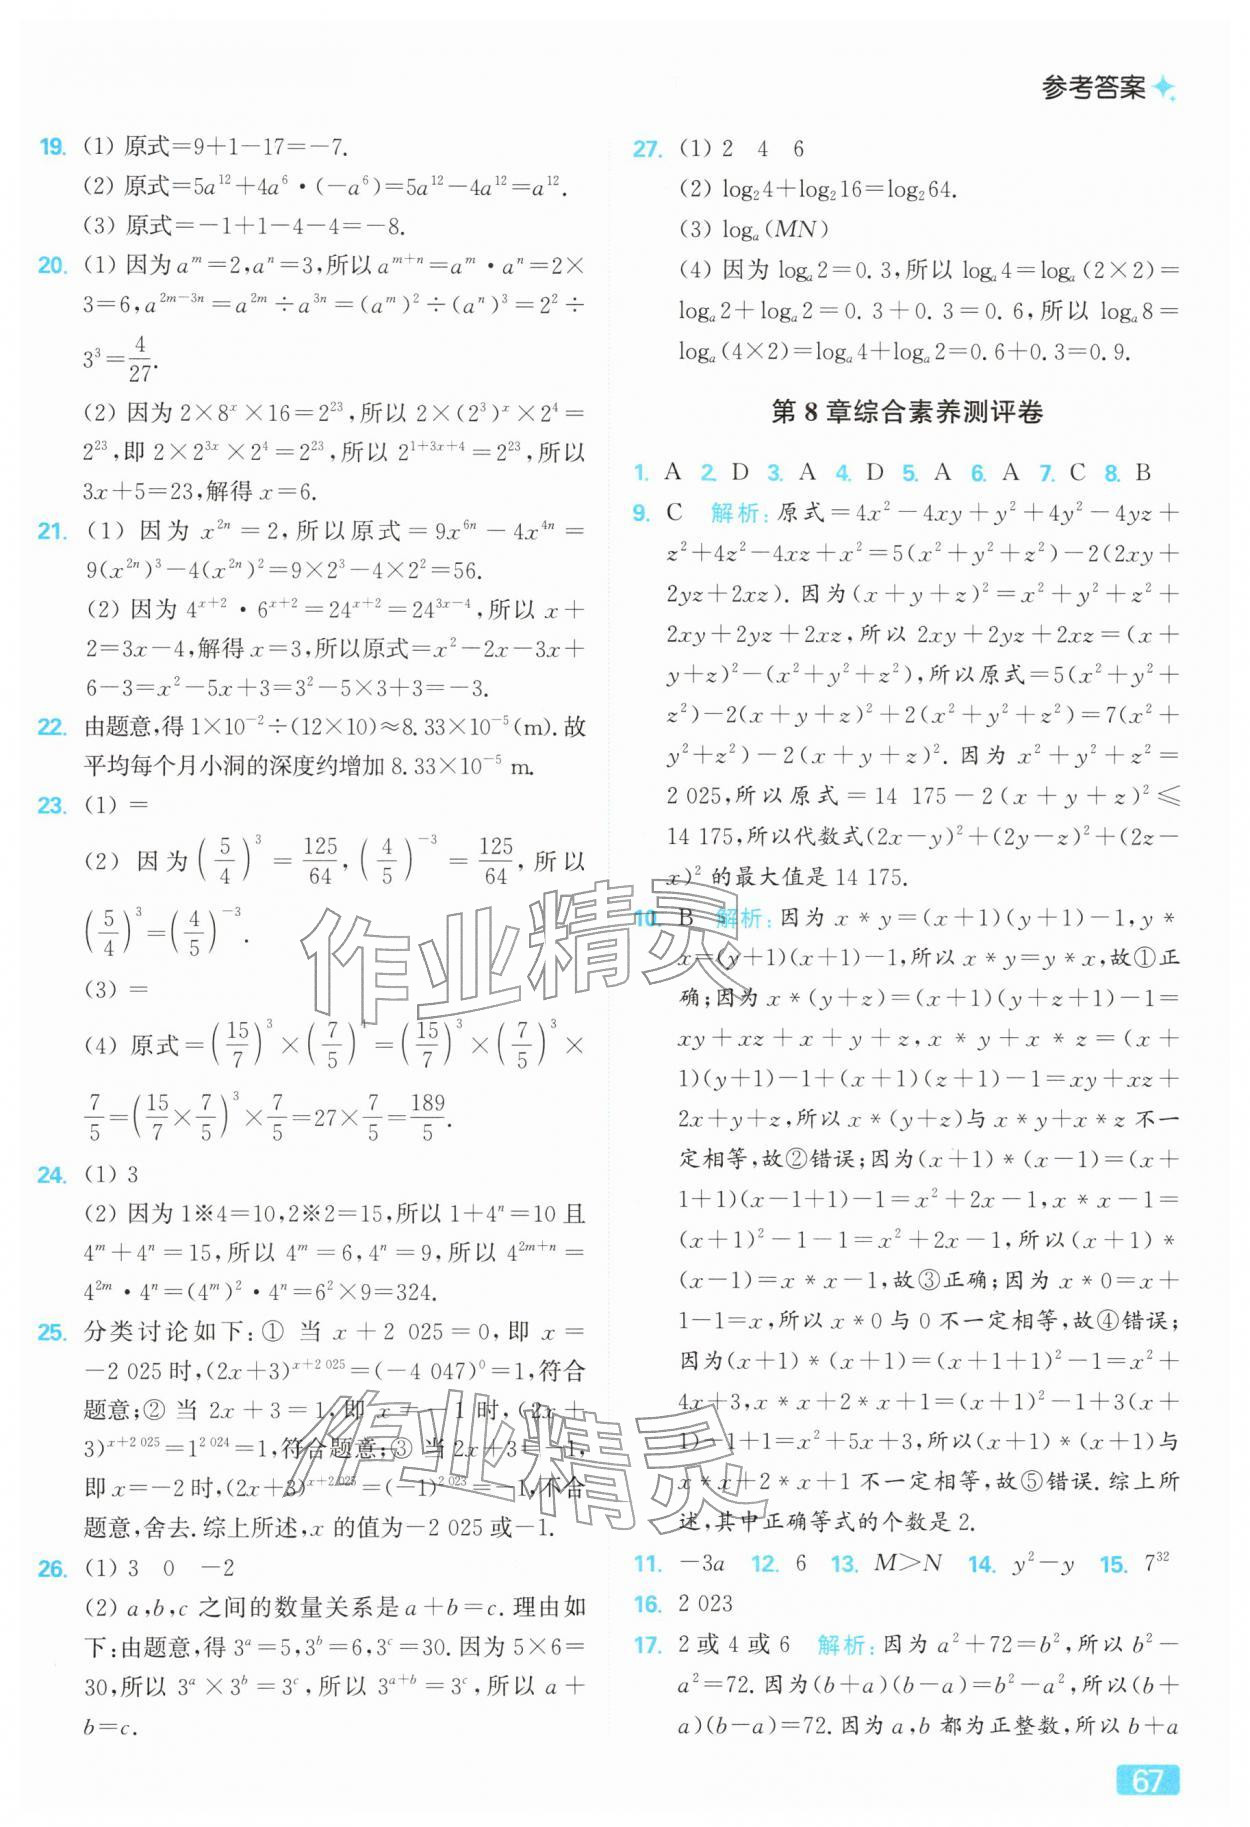 参考答案
19. (1) 原式=9+1-17=-7.
(2) 原式=5a¹²+4a⁶·(-a⁶)=5a¹²-4a¹²=a¹².
(3) 原式=-1+1-4-4=-8.
20. (1) 因为aᵐ=2,aⁿ=3,所以aᵐ⁺ⁿ=aᵐ·aⁿ=2×
3=6,a²ᵐ⁻³ⁿ=a²ᵐ÷a³ⁿ=(aᵐ)²÷(aⁿ)³=2²÷
3³=4/27.
(2) 因为2×8ˣ×16=2²³,所以2×(2³)ˣ×2⁴=
2²³,即2×2³ˣ×2⁴=2²³,所以2¹⁺³ˣ⁺⁴=2²³,所以
3x+5=23,解得x=6.
21. (1) 因为x²ⁿ=2,所以原式=9x⁶ⁿ-4x⁴ⁿ=
9(x²ⁿ)³-4(x²ⁿ)²=9×2³-4×2²=56.
(2) 因为4ˣ⁺²·6ˣ⁺²=24ˣ⁺²=24³ˣ⁻⁴,所以x+
2=3x-4,解得x=3,所以原式=x²-2x-3x+
6-3=x²-5x+3=3²-5×3+3=-3.
22. 由题意,得1×10⁻²÷(12×10)≈8.33×10⁻⁵(m).故
平均每个月小洞的深度约增加8.33×10⁻⁵ m.
23. (1) =
(2) 因为(5/4)³=125/64,(4/5)⁻³=125/64,所以
(5/4)³=(4/5)⁻³.
(3) =
(4) 原式=(15/7)³×(7/5)⁴=(15/7)³×(7/5)³×
7/5=(15/7×7/5)³×7/5=27×7/5=189/5.
24. (1) 3
(2) 因为1※4=10,2※2=15,所以1+4ⁿ=10且
4ᵐ+4ⁿ=15,所以4ᵐ=6,4ⁿ=9,所以4²ᵐ⁺ⁿ=
4²ᵐ·4ⁿ=(4ᵐ)²·4ⁿ=6²×9=324.
25. 分类讨论如下:① 当x+2 025=0,即x=
-2 025时,(2x+3)ˣ⁺² ⁰²⁵=(-4 047)⁰=1,符合
题意;② 当2x+3=1,即x=-1时,(2x+
3)ˣ⁺² ⁰²⁵=1² ⁰²⁴=1,符合题意;③ 当2x+3=-1,
即x=-2时,(2x+3)ˣ⁺² ⁰²⁵=(-1)² ⁰²³=-1,不合
题意,舍去.综上所述,x的值为-2 025或-1.
26. (1) 3 0 -2
(2) a,b,c之间的数量关系是a+b=c.理由如
下:由题意,得3ᵃ=5,3ᵇ=6,3ᶜ=30.因为5×6=
30,所以3ᵃ×3ᵇ=3ᶜ,所以3ᵃ⁺ᵇ=3ᶜ,所以a+
b=c.
27. (1) 2 4 6
(2) log₂4+log₂16=log₂64.
(3) logₐ(MN)
(4) 因为logₐ2=0.3,所以logₐ4=logₐ(2×2)=
logₐ2+logₐ2=0.3+0.3=0.6,所以logₐ8=
logₐ(4×2)=logₐ4+logₐ2=0.6+0.3=0.9.
第8章综合素养测评卷
1. A 2. D 3. A 4. D 5. A 6. A 7. C 8. B
9. C 解析:原式=4x²-4xy+y²+4y²-4yz+
z²+4z²-4xz+x²=5(x²+y²+z²)-2(2xy+
2yz+2xz).因为(x+y+z)²=x²+y²+z²+
2xy+2yz+2xz,所以2xy+2yz+2xz=(x+
y+z)²-(x²+y²+z²),所以原式=5(x²+y²+
z²)-2(x+y+z)²+2(x²+y²+z²)=7(x²+
y²+z²)-2(x+y+z)².因为x²+y²+z²=
2 025,所以原式=14 175-2(x+y+z)²≤
14 175,所以代数式(2x-y)²+(2y-z)²+(2z-
x)²的最大值是14 175.
10. B 解析:因为x*y=(x+1)(y+1)-1,y*
x=(y+1)(x+1)-1,所以x*y=y*x,故①正
确;因为x*(y+z)=(x+1)(y+z+1)-1=
xy+xz+x+y+z,x*y+x*z=(x+
1)(y+1)-1+(x+1)(z+1)-1=xy+xz+
2x+y+z,所以x*(y+z)与x*y+x*z不一
定相等,故②错误;因为(x+1)*(x-1)=(x+
1+1)(x-1+1)-1=x²+2x-1,x*x-1=
(x+1)²-1-1=x²+2x-1,所以(x+1)*
(x-1)=x*x-1,故③正确;因为x*0=x+
1-1=x,所以x*0与0不一定相等,故④错误;
因为(x+1)*(x+1)=(x+1+1)²-1=x²+
4x+3,x*x+2*x+1=(x+1)²-1+3(x+
1)-1+1=x²+5x+3,所以(x+1)*(x+1)与
x*x+2*x+1不一定相等,故⑤错误.综上所
述,其中正确等式的个数是2.
11. -3a 12. 6 13. M>N 14. y²-y 15. 7³²
16. 2 023
17. 2或4或6 解析:因为a²+72=b²,所以b²-
a²=72.因为(b+a)(b-a)=b²-a²,所以(b+
a)(b-a)=72.因为a,b都为正整数,所以b+a
67
作业精灵
作业精灵